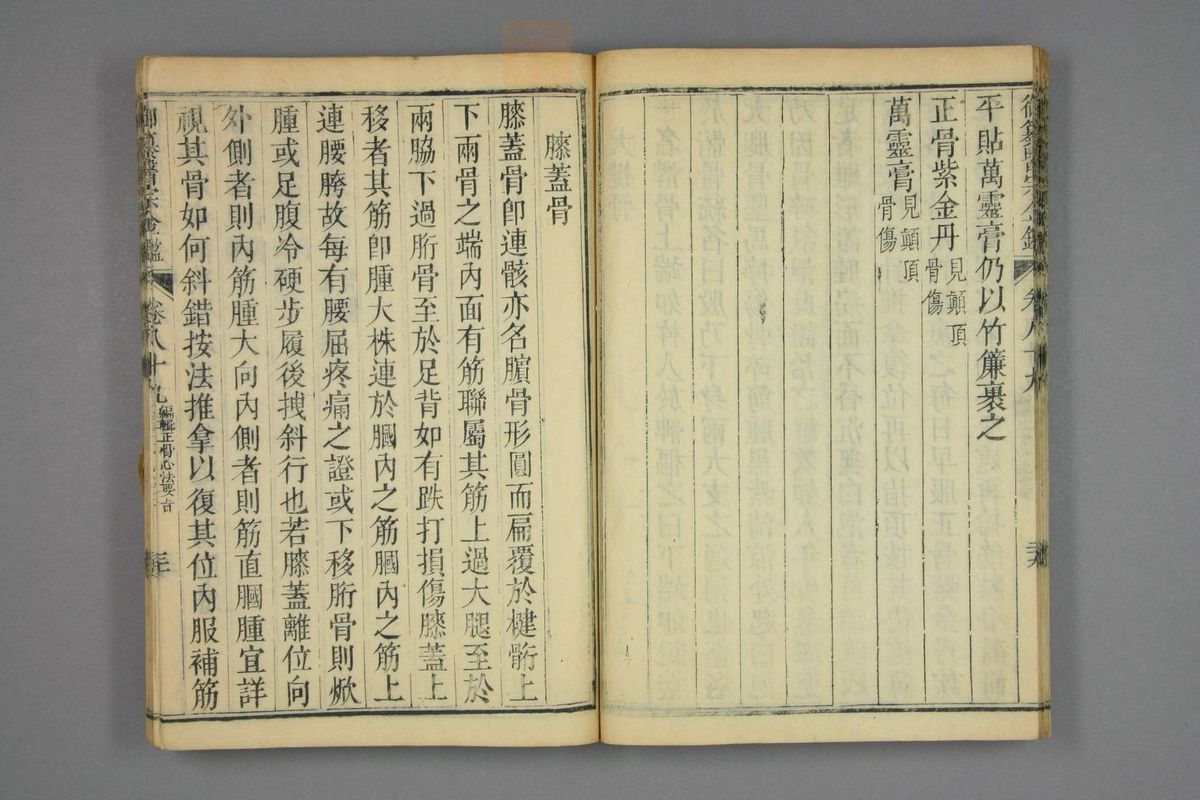 平貼萬靈膏仍以竹簾裹之
正骨紫金丹見顛頂骨傷
萬靈膏見顛頂骨傷
膝蓋骨
膝蓋骨卽連骸亦名臏骨形圓而扁覆於楗骱上
下兩骨之端內面有筋聯屬其筋上過大腿至於
兩脇下過胻骨至於足背如有跌打損傷膝蓋上
移者其筋卽腫大株連於膕內之筋膕內之筋上
連腰胯故每有腰屈疼痛之證或下移胻骨則焮
腫或足腹冷硬步履後拽斜行也若膝蓋離位向
外側者則內筋腫大向內側者則筋直膕腫宜詳
視其骨如何斜錯按法推拿以復其位內服補筋
御纂醫宗金鑑 卷八十九 編輯正骨心法要旨